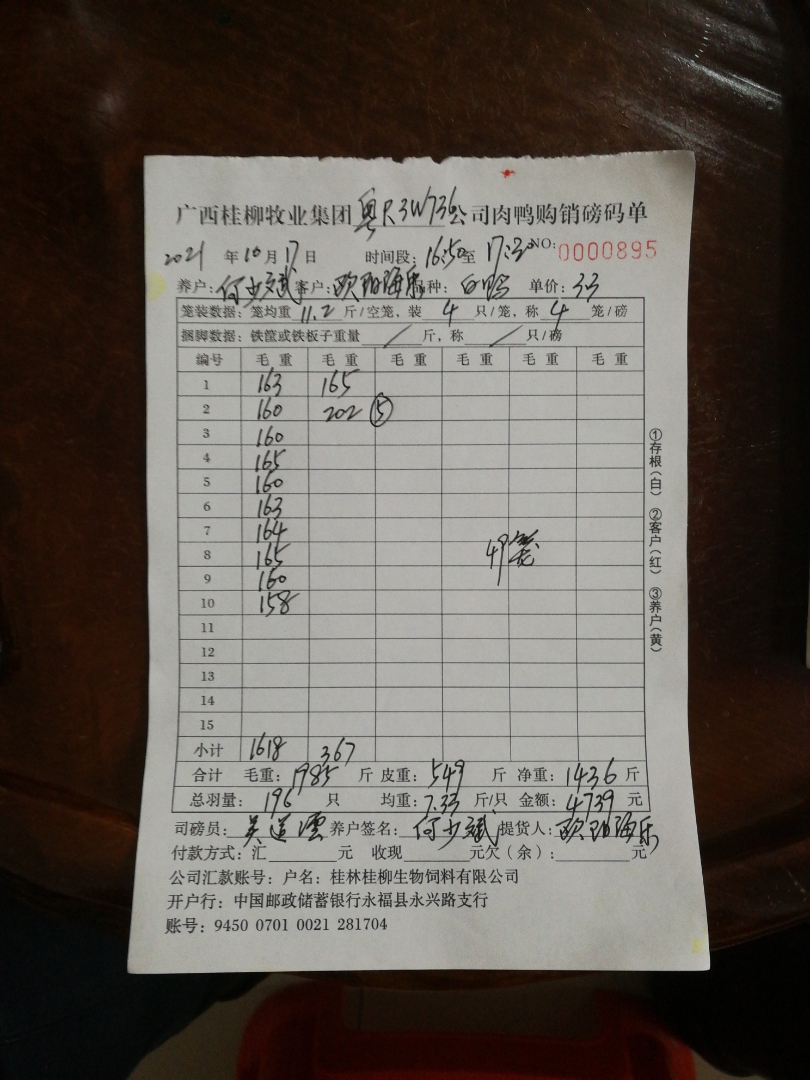 广西桂柳牧业集团粤R3W736公司肉鸭购销磅码单
2021年10月17日 时间段:16:50至17:20 NO:0000895
养户:何少斌 客户:欧阳海乐 种: 单价:3.3
笼装数据:笼均重11.2斤/空笼,装4只/笼,称4笼/磅
捆脚数据:铁筐或铁板子重量/斤,称/只/磅
编号 毛重 毛重 毛重 毛重 毛重 毛重
1 163 165
2 160 202 ⑤
3 160
4 165
5 160
6 163
7 164
8 165 49笼
9 160
10 158
11
12
13
14
15
小计 1618 367
合计 毛重:1985斤 皮重:549斤 净重:1436斤
总羽量:196只 均重:7.33斤/只 金额:4739元
司磅员:吴道 养户签名:何少斌 提货人:欧阳海乐
付款方式:汇 元 收现 元欠(余): 元
公司汇款账号:户名:桂林桂柳生物饲料有限公司
开户行:中国邮政储蓄银行永福县永兴路支行
账号:9450 0701 0021 281704
①存根(白) ②客户(红) ③养户(黄)